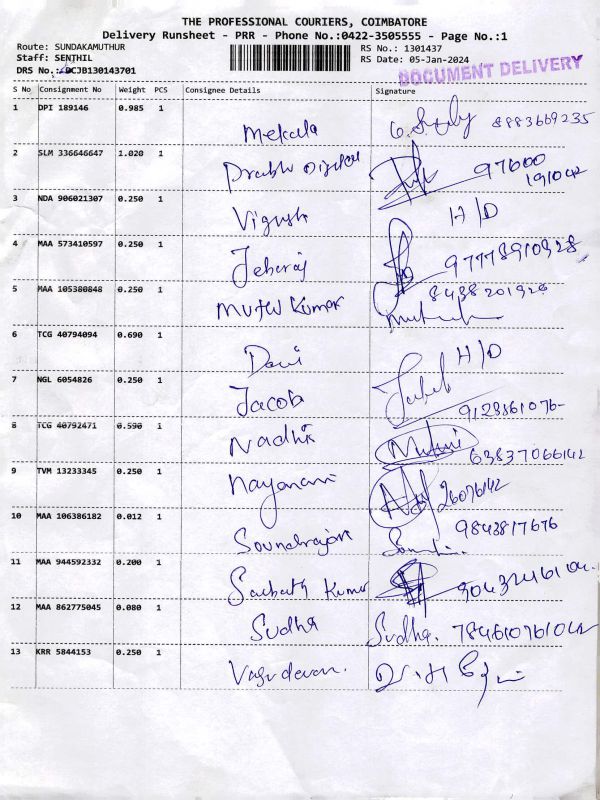 THE PROFESSIONAL COURIERS, COIMBATORE
Delivery Runsheet - PRR - Phone No.:0422-3505555 - Page No.:1
Route: SUNDAKAMUTHUR RS No.: 1301437
Staff: SENTHIL RS Date: 05-Jan-2024
DRS No.: DCJB130143701 DOCUMENT DELIVERY
S No Consignment No Weight PCS Consignee Details Signature
1 DPI 189146 0.985 1
Mekala 8883669235
2 SLM 336646647 1.020 1
Prabhu Digital 97600
191042
3 NDA 906021307 0.250 1
Vignesh H/D
4 MAA 573410597 0.250 1
Jebaraj 97778910928
5 MAA 105380848 0.250 1
Muthu Kumar 8438201926
6 TCG 40794094 0.690 1
Davi H/D
7 NGL 6054826 0.250 1
Jacob
9123861076-
8 TCG 40792471 0.590 1
Nadhis 63837066142
9 TVM 13233345 0.250 1
Nayanani 26076142
10 MAA 106386182 0.012 1
Soundrajan 9843817676
11 MAA 944592332 0.200 1
Sarbath Kumar
12 MAA 862775045 0.080 1
Sudha Sudha. 784610761042
13 KRR 5844153 0.250 1
Vasudevan.